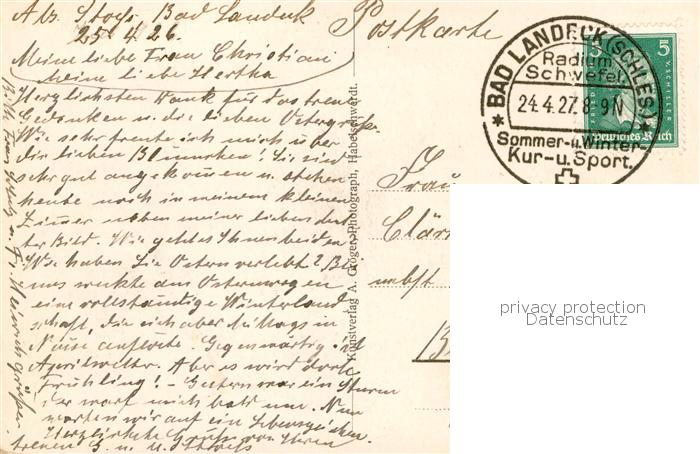 Abs. Stoess Bad Landeck
25.4.26.
Meine liebe Frau Christian
Meine liebe Hertha
Herzlichsten Dank für das treue
Gedenken u. die lieben Ostergrüße
Wie sehr freute ich mich über
die lieben Blümchen! Sie sind
sehr gut angekommen u. stehen
heute noch in meinem kleinen
Zimmer neben meiner lieben
ter Bild. Wie geht es Ihnen beiden
Wie haben Sie Ostern verlebt? Bei
uns weckte am Ostermorgen
eine vollständige Winterland
schaft, die sich aber Mittags in
auflöste. Gegenwärtig ist
Aprilwetter. Aber es wird doch
Frühling! – Gestern war ein Sturm
der warf mich bald um. Nun
warten wir auf ein Lebenszeichen.
Herzlichste Grüße von Ihren
treuen G. u. M. Stoess
Kunstverlag A. Gröger, Photograph, Habelschwerdt.
Postkarte
BAD LANDECK (SCHLES.)
Radium
Schwefel
24.4.27.8-9N
Sommer- u. Winter-
Kur- u. Sport.
5 5
FRIED V. SCHILLER
Deutsches Reich
Frau
Clär
nebst
B
privacy protection
Datenschutz